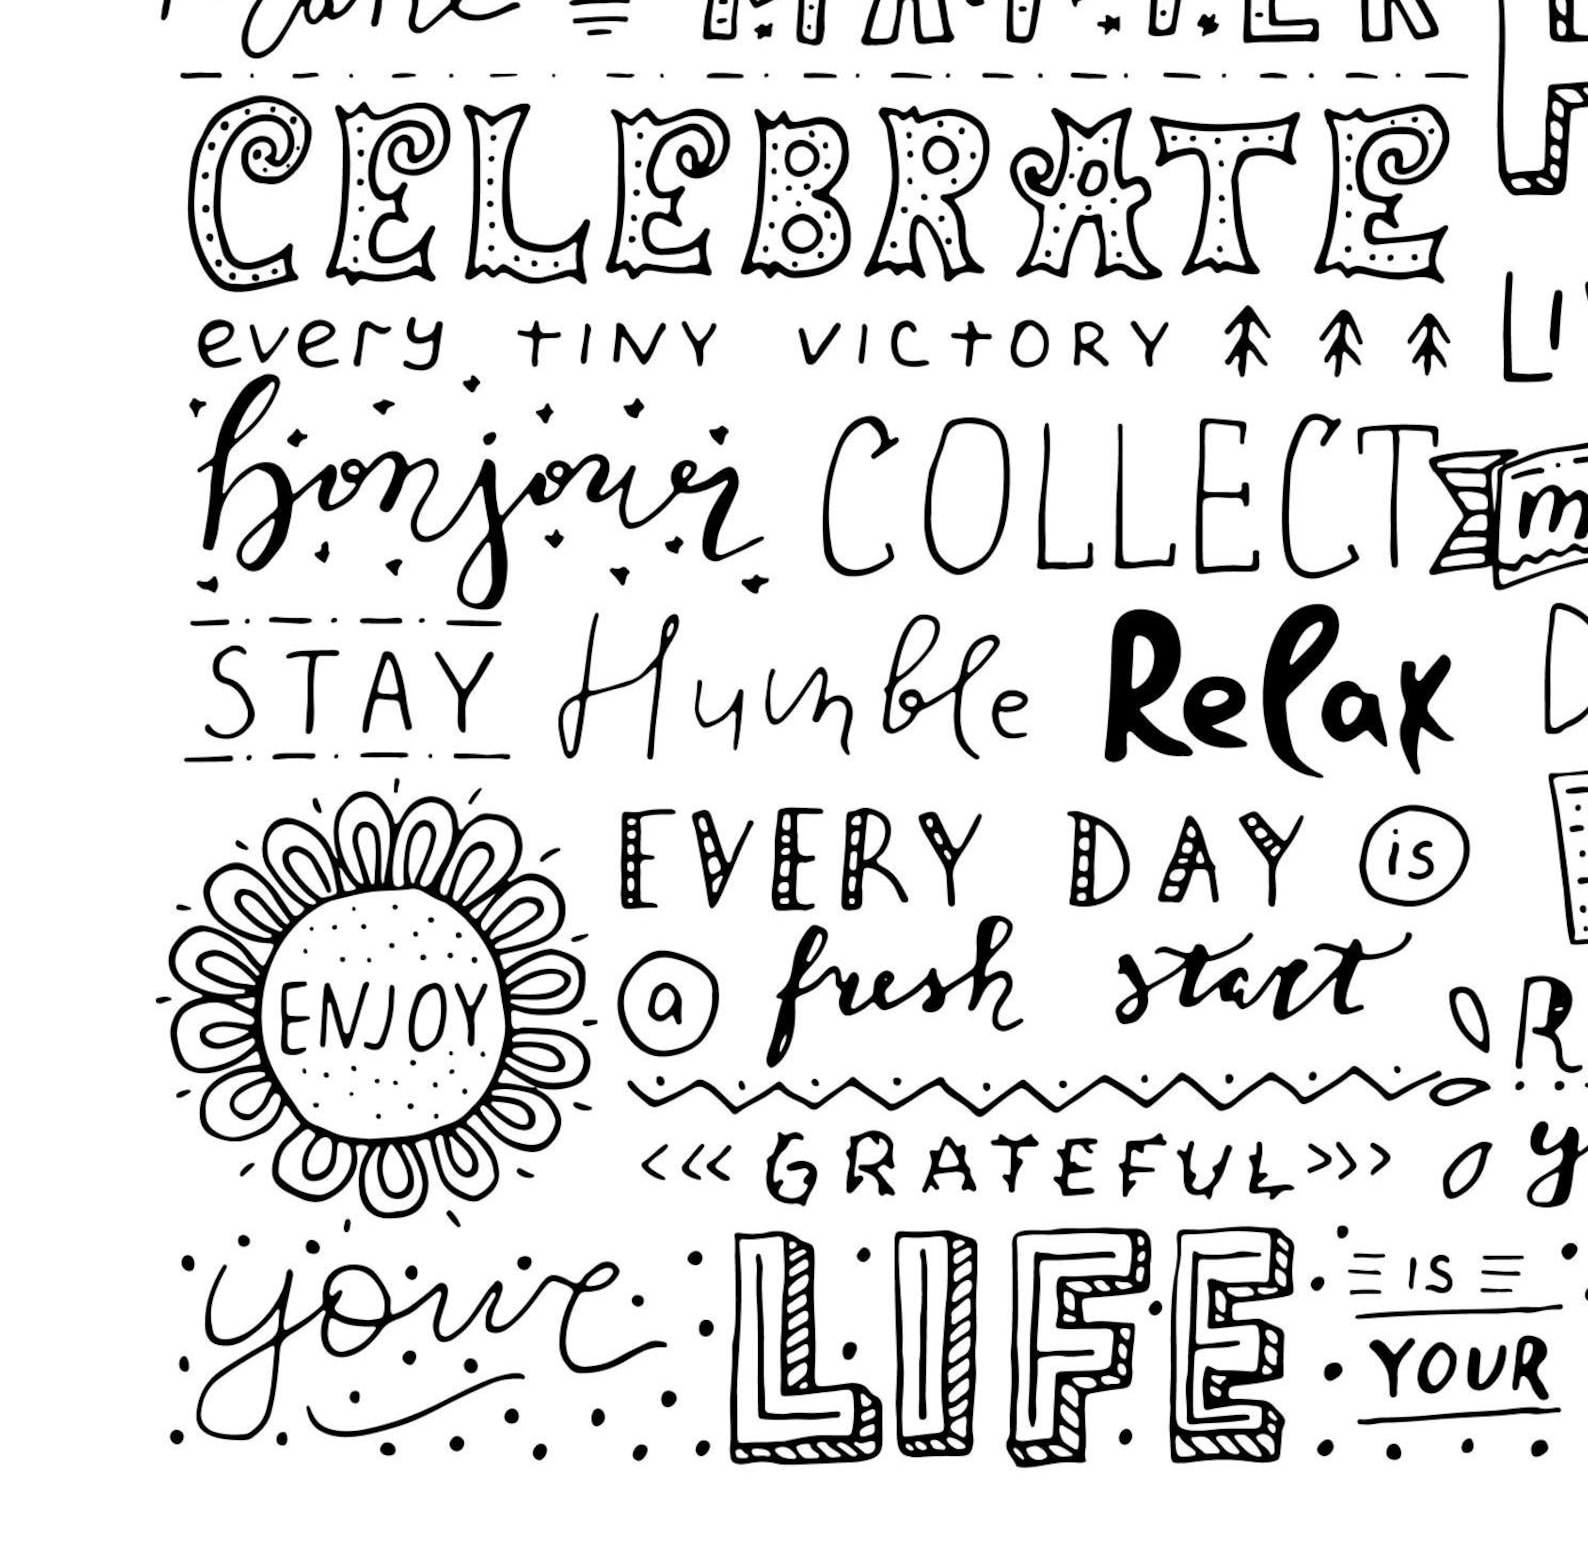 MATTER
CELEBRATE
every TINY VICTORY
bonjour COLLECT
STAY Humble Relax
EVERY DAY is
ENJOY
a fresh start
<<< GRATEFUL >>>
your LIFE IS
YOUR